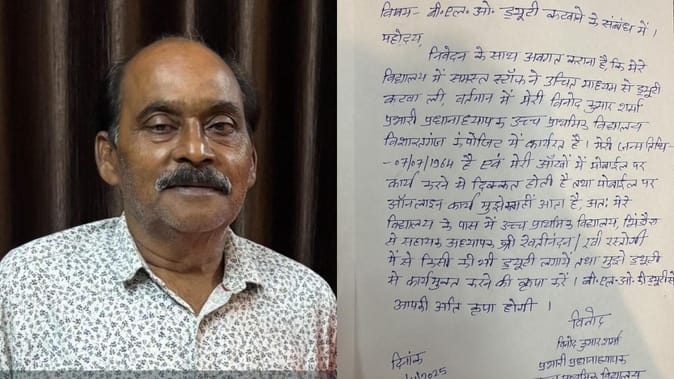 विषय- बी०एल०ओ० ड्यूटी कटवाने के संबंध में।
महोदय,
निवेदन के साथ अवगत कराना है, कि मेरे
विद्यालय में समस्त स्टॉफ ने उचित माध्यम से ड्यूटी
कटवा ली, वर्तमान में मेरी विनोद कुमार शर्मा
प्रभारी प्रधानाध्यापक उच्च प्राथमिक विद्यालय
कंपोजिट में कार्यरत है। मेरी जन्म तिथि-
-07/07/1964 है एवं मेरी आँखों में मोबाईल पर
कार्य करने में दिक्कत होती है तथा मोबाईल पर
ऑनलाइन कार्य मुझे नहीं आता है, अतः मेरे
विद्यालय के पास में उच्च प्राथमिक विद्यालय,
से सहायक अध्यापक श्री / रवी रस्तोगी
में से किसी की भी ड्यूटी लगायें तथा मुझे ड्यूटी
से कार्यमुक्त करने की कृपा करें। बी०एल०ओ० की ड्यूटी से
आपकी अति कृपा होगी।
विनोद
विनोद कुमार शर्मा
दिनांक
प्रभारी प्रधानाध्यापक
प्राथमिक विद्यालय
2025